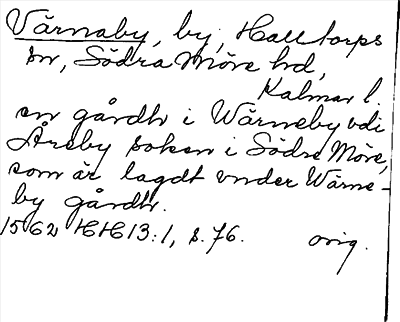 Vårnaby, by, Halltorps
sn, Södra Möre hd,
Kalmar l.
en gårdh i Wårneby vdi
Åreby soken i Södre Möre,
som är lagdt vnder Wårne-
by gårdh.
1562 HH13:1, s. 76. orig.